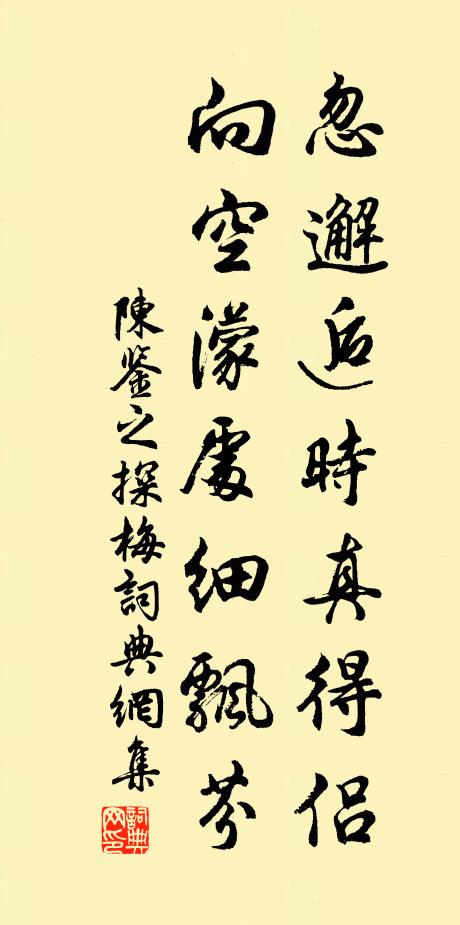 忽邂逅時真得侶
向空濛處細飄芬
陳鉴之探梅詞典網集
詞典网印